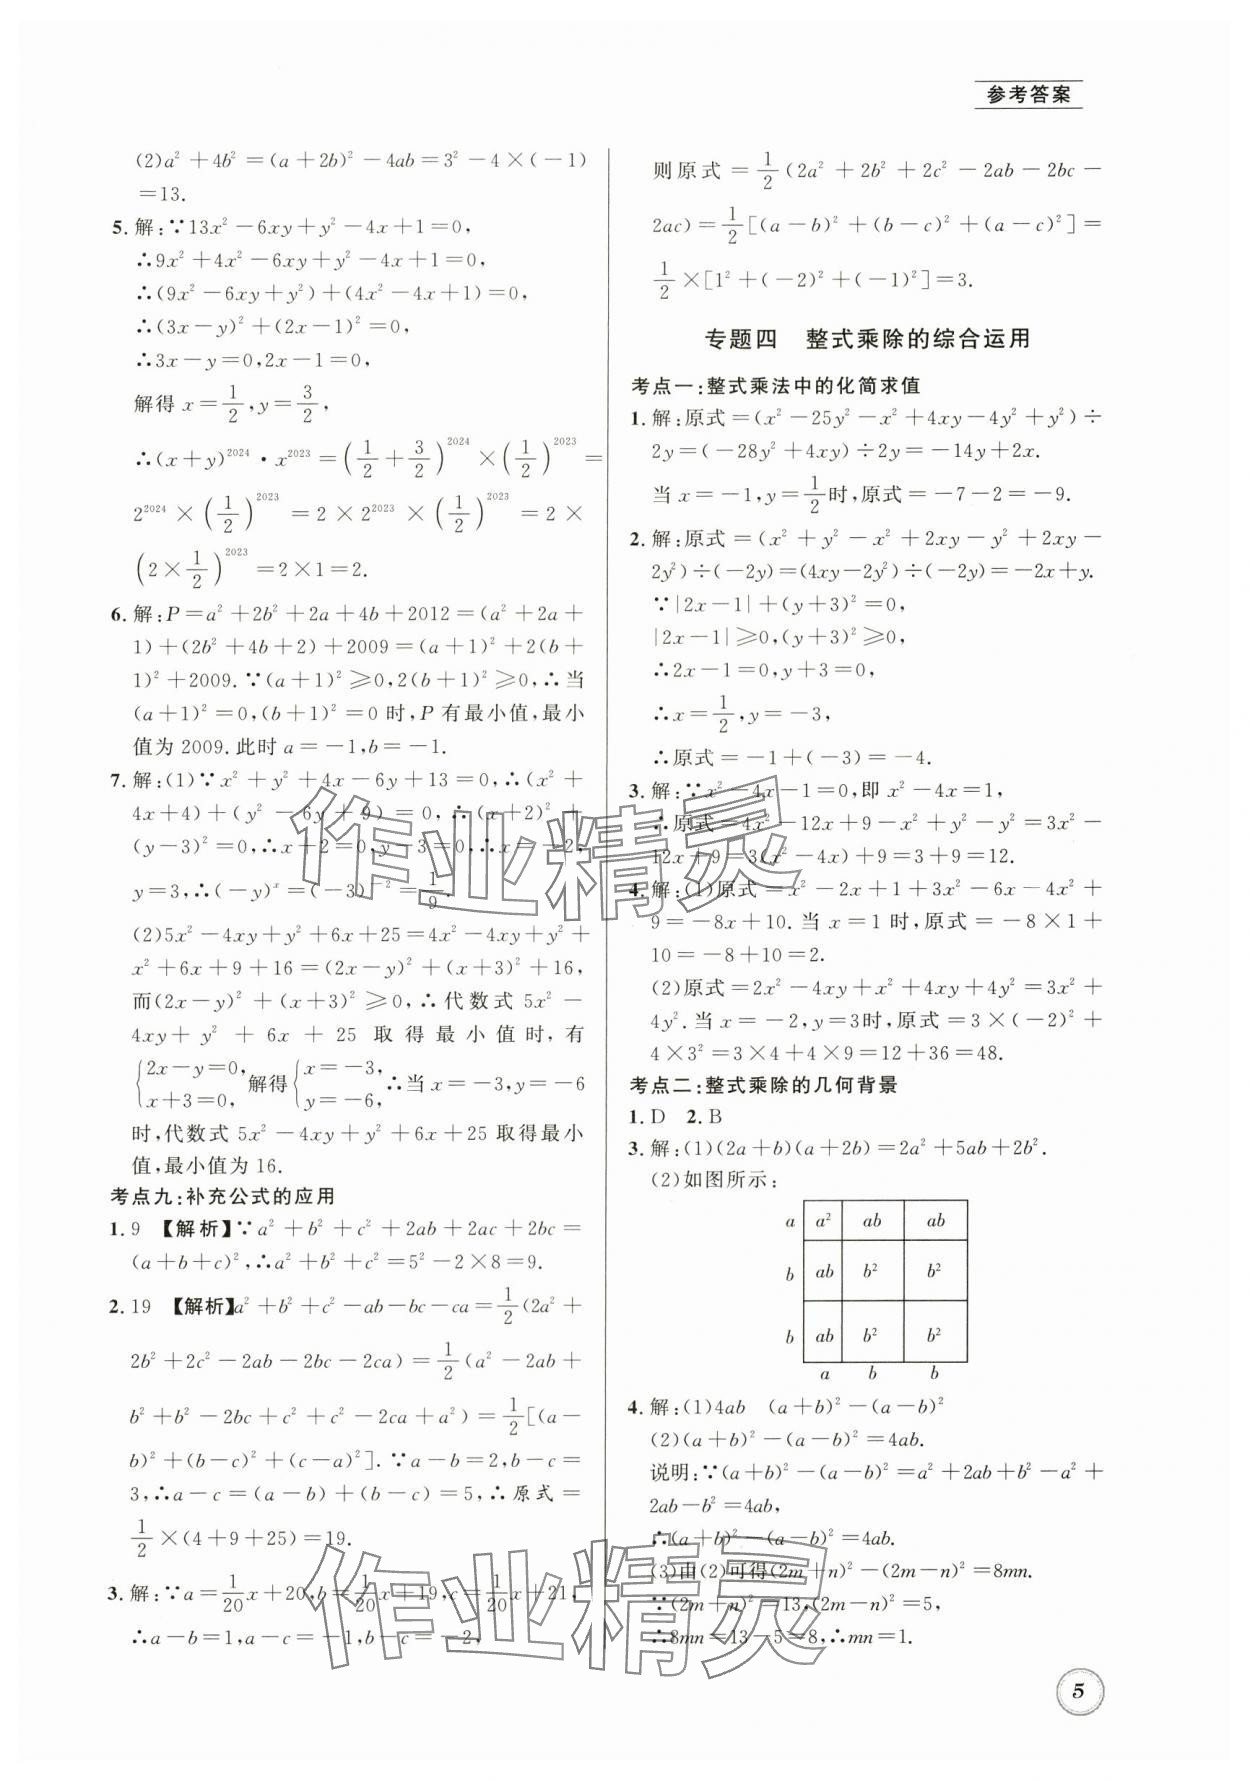 参考答案
(2)a²+4b²=(a+2b)²-4ab=3²-4×(-1)
=13.
5. 解:∵13x²-6xy+y²-4x+1=0,
∴9x²+4x²-6xy+y²-4x+1=0,
∴(9x²-6xy+y²)+(4x²-4x+1)=0,
∴(3x-y)²+(2x-1)²=0,
∴3x-y=0,2x-1=0,
解得 x=1/2,y=3/2,
∴(x+y)²⁰²⁴·x²⁰²³=(1/2+3/2)²⁰²⁴×(1/2)²⁰²³=
2²⁰²⁴×(1/2)²⁰²³=2×2²⁰²³×(1/2)²⁰²³=2×
(2×1/2)²⁰²³=2×1=2.
6. 解:P=a²+2b²+2a+4b+2012=(a²+2a+
1)+(2b²+4b+2)+2009=(a+1)²+2(b+
1)²+2009.∵(a+1)²≥0,2(b+1)²≥0,∴当
(a+1)²=0,(b+1)²=0时,P有最小值,最小
值为2009.此时a=-1,b=-1.
7. 解:(1)∵x²+y²+4x-6y+13=0,∴(x²+
4x+4)+(y²-6y+9)=0,∴(x+2)²+
(y-3)²=0,∴x+2=0,y-3=0,∴x=-2,
y=3,∴(-y)ˣ=(-3)⁻²=1/9.
(2)5x²-4xy+y²+6x+25=4x²-4xy+y²+
x²+6x+9+16=(2x-y)²+(x+3)²+16,
而(2x-y)²+(x+3)²≥0,∴代数式5x²-
4xy+y²+6x+25取得最小值时,有
{2x-y=0, x+3=0, 解得{x=-3, y=-6, ∴当x=-3,y=-6
时,代数式5x²-4xy+y²+6x+25取得最小
值,最小值为16.
考点九:补充公式的应用
1. 9 【解析】∵a²+b²+c²+2ab+2ac+2bc=
(a+b+c)²,∴a²+b²+c²=5²-2×8=9.
2. 19 【解析】a²+b²+c²-ab-bc-ca=1/2(2a²+
2b²+2c²-2ab-2bc-2ca)=1/2(a²-2ab+
b²+b²-2bc+c²+c²-2ca+a²)=1/2[(a-
b)²+(b-c)²+(c-a)²].∵a-b=2,b-c=
3,∴a-c=(a-b)+(b-c)=5,∴原式=
1/2×(4+9+25)=19.
3. 解:∵a=1/20x+20,b=1/20x+19,c=1/20x+21,
∴a-b=1,a-c=-1,b-c=-2,
则原式=1/2(2a²+2b²+2c²-2ab-2bc-
2ac)=1/2[(a-b)²+(b-c)²+(a-c)²]=
1/2×[1²+(-2)²+(-1)²]=3.
专题四 整式乘除的综合运用
考点一:整式乘法中的化简求值
1. 解:原式=(x²-25y²-x²+4xy-4y²+y²)÷
2y=(-28y²+4xy)÷2y=-14y+2x.
当x=-1,y=1/2时,原式=-7-2=-9.
2. 解:原式=(x²+y²-x²+2xy-y²+2xy-
2y²)÷(-2y)=(4xy-2y²)÷(-2y)=-2x+y.
∵|2x-1|+(y+3)²=0,
|2x-1|≥0,(y+3)²≥0,
∴2x-1=0,y+3=0,
∴x=1/2,y=-3,
∴原式=-1+(-3)=-4.
3. 解:∵x²-4x-1=0,即x²-4x=1,
∴原式=4x²-12x+9-x²+y²-y²=3x²-
12x+9=3(x²-4x)+9=3+9=12.
4. 解:(1)原式=x²-2x+1+3x²-6x-4x²+
9=-8x+10.当x=1时,原式=-8×1+
10=-8+10=2.
(2)原式=2x²-4xy+x²+4xy+4y²=3x²+
4y².当x=-2,y=3时,原式=3×(-2)²+
4×3²=3×4+4×9=12+36=48.
考点二:整式乘除的几何背景
1. D 2. B
3. 解:(1)(2a+b)(a+2b)=2a²+5ab+2b².
(2)如图所示:
a a² ab ab
b ab b² b²
b ab b² b²
a b b
4. 解:(1)4ab (a+b)²-(a-b)²
(2)(a+b)²-(a-b)²=4ab.
说明:∵(a+b)²-(a-b)²=a²+2ab+b²-a²+
2ab-b²=4ab,
∴(a+b)²-(a-b)²=4ab.
(3)由(2)可得(2m+n)²-(2m-n)²=8mn.
∵(2m+n)²=13,(2m-n)²=5,
∴8mn=13-5=8,∴mn=1.
作业精灵
作业精灵
5